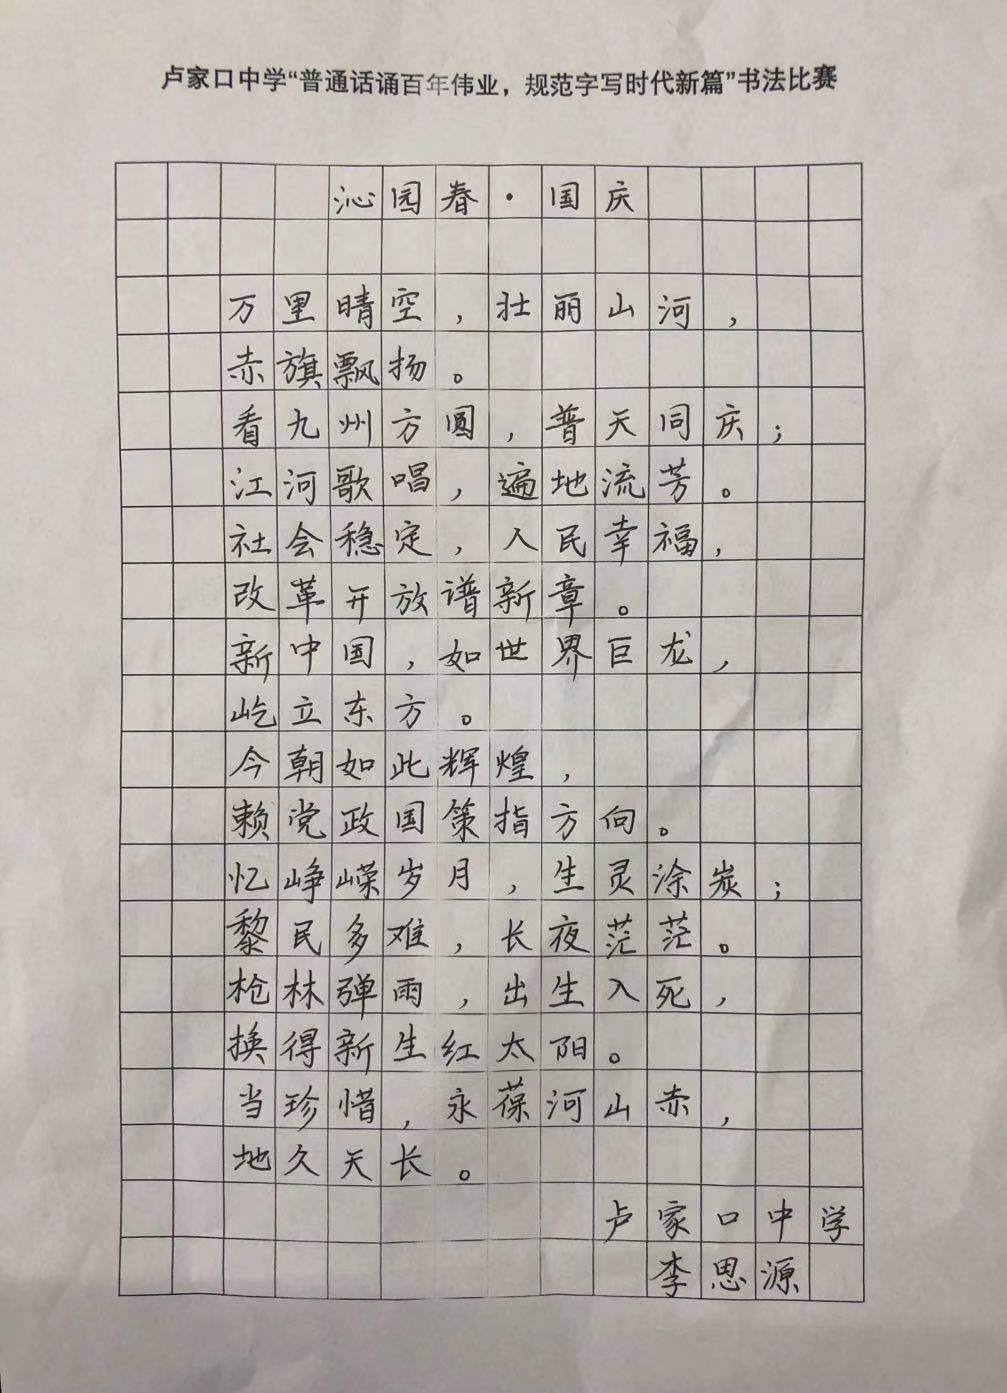 卢家口中学“普通话诵百年伟业，规范字写时代新篇”书法比赛
沁园春·国庆
万里晴空，壮丽山河，
赤旗飘扬。
看九州方圆，普天同庆；
江河歌唱，遍地流芳。
社会稳定，人民幸福，
改革开放谱新章。
新中国，如世界巨龙，
屹立东方。
今朝如此辉煌，
赖党政国策指方向。
忆峥嵘岁月，生灵涂炭；
黎民多难，长夜茫茫。
枪林弹雨，出生入死，
换得新生红太阳。
当珍惜，永葆河山赤，
地久天长。
卢家口中学
李思源